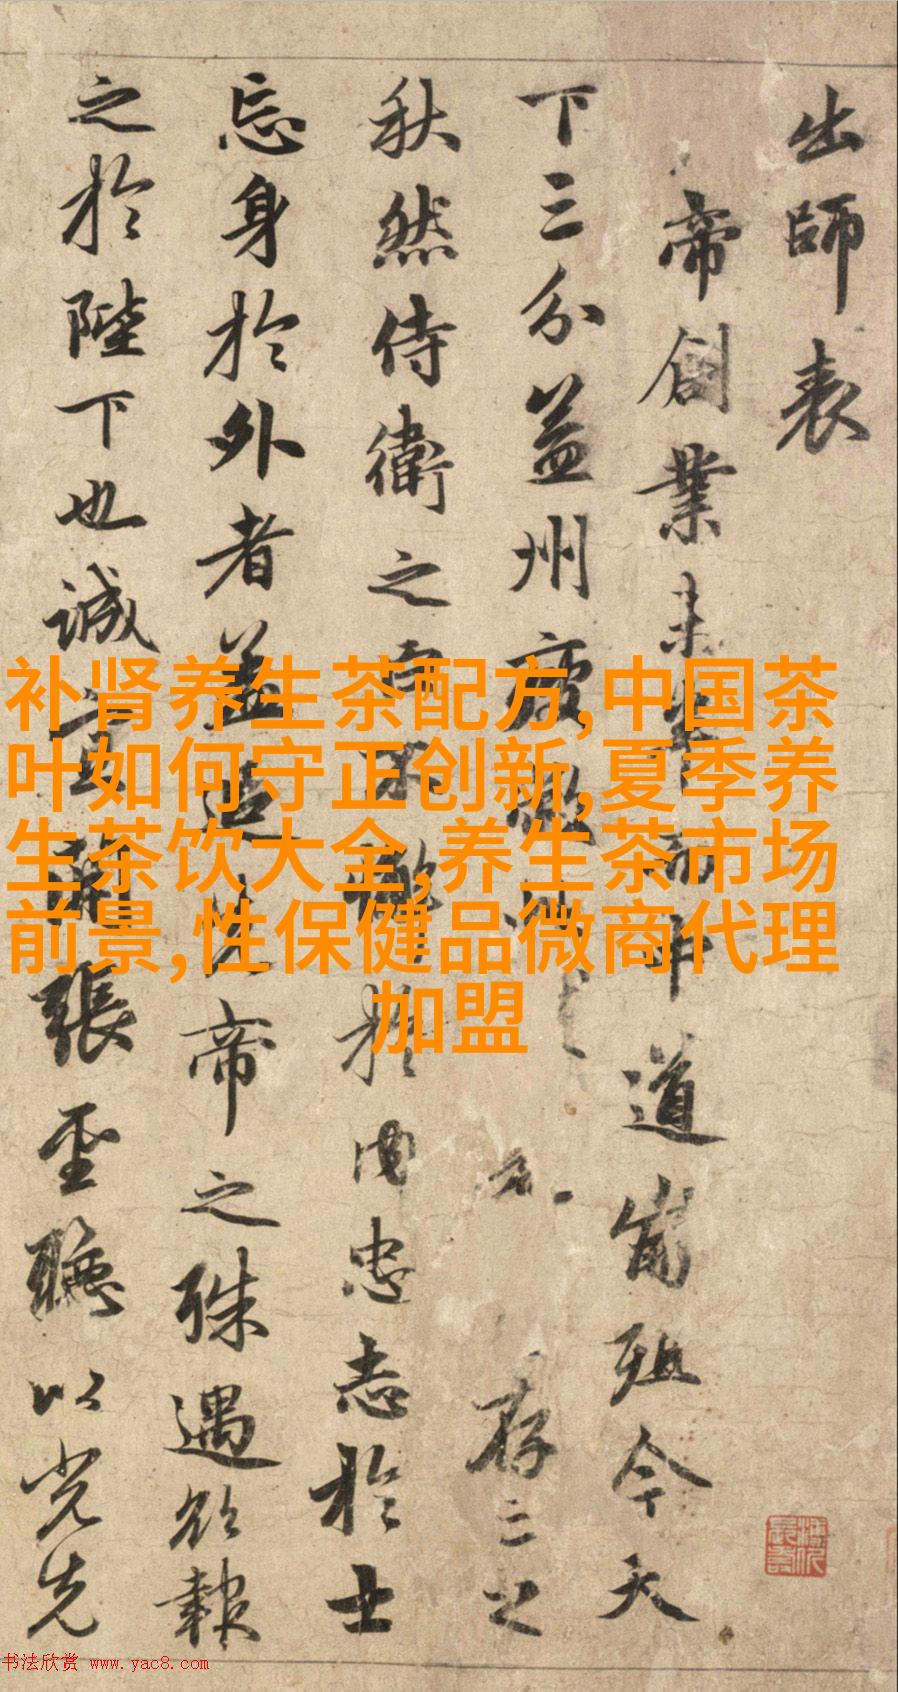 出師表
帝創業未半而中道崩殂今天
下三分益州疲敝存亡之
秋然侍衛之臣不懈於内忠志於士
忘身於外者蓋追先帝之殊遇欲報
之於陛下也誠宜開張聖聽以光先
补肾养生茶配方,中国茶
叶如何守正创新,夏季养
生茶饮大全,养生茶市场
前景,性保健品微商代理
加盟
书法欣赏 www.yac8.com